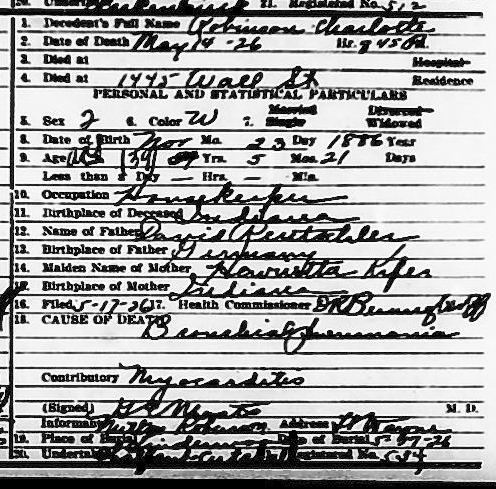 20. Undertaker 21. Registered No. 512
1. Decedent's Full Name Robinson Charlotte
2. Date of Death May 14 - 26 Hr. 945 P.
3. Died at Hospital
4. Died at 1445 Wall St Residence
PERSONAL AND STATISTICAL PARTICULARS
5. Sex 2 6. Color W 7. Married Single Divorced Widowed
8. Date of Birth Nov Mo. 23 Day 1886 Year
9. Age 39 Yrs. 5 Mos. 21 Days
Less than a Day — Hrs. — Min.
10. Occupation Housekeeper
11. Birthplace of Deceased Indiana
12. Name of Father David
13. Birthplace of Father Germany
14. Maiden Name of Mother Henrietta
15. Birthplace of Mother Indiana
16. Filed 5-17-26 17. Health Commissioner
18. CAUSE OF DEATH
Bronchial Pneumonia
Contributory Myocarditis
(Signed) M. D.
Informant Robinson Address Ft Wayne
19. Place of Burial Lindenwood Date of Burial 5-17-26
20. Undertaker Registered No. 534